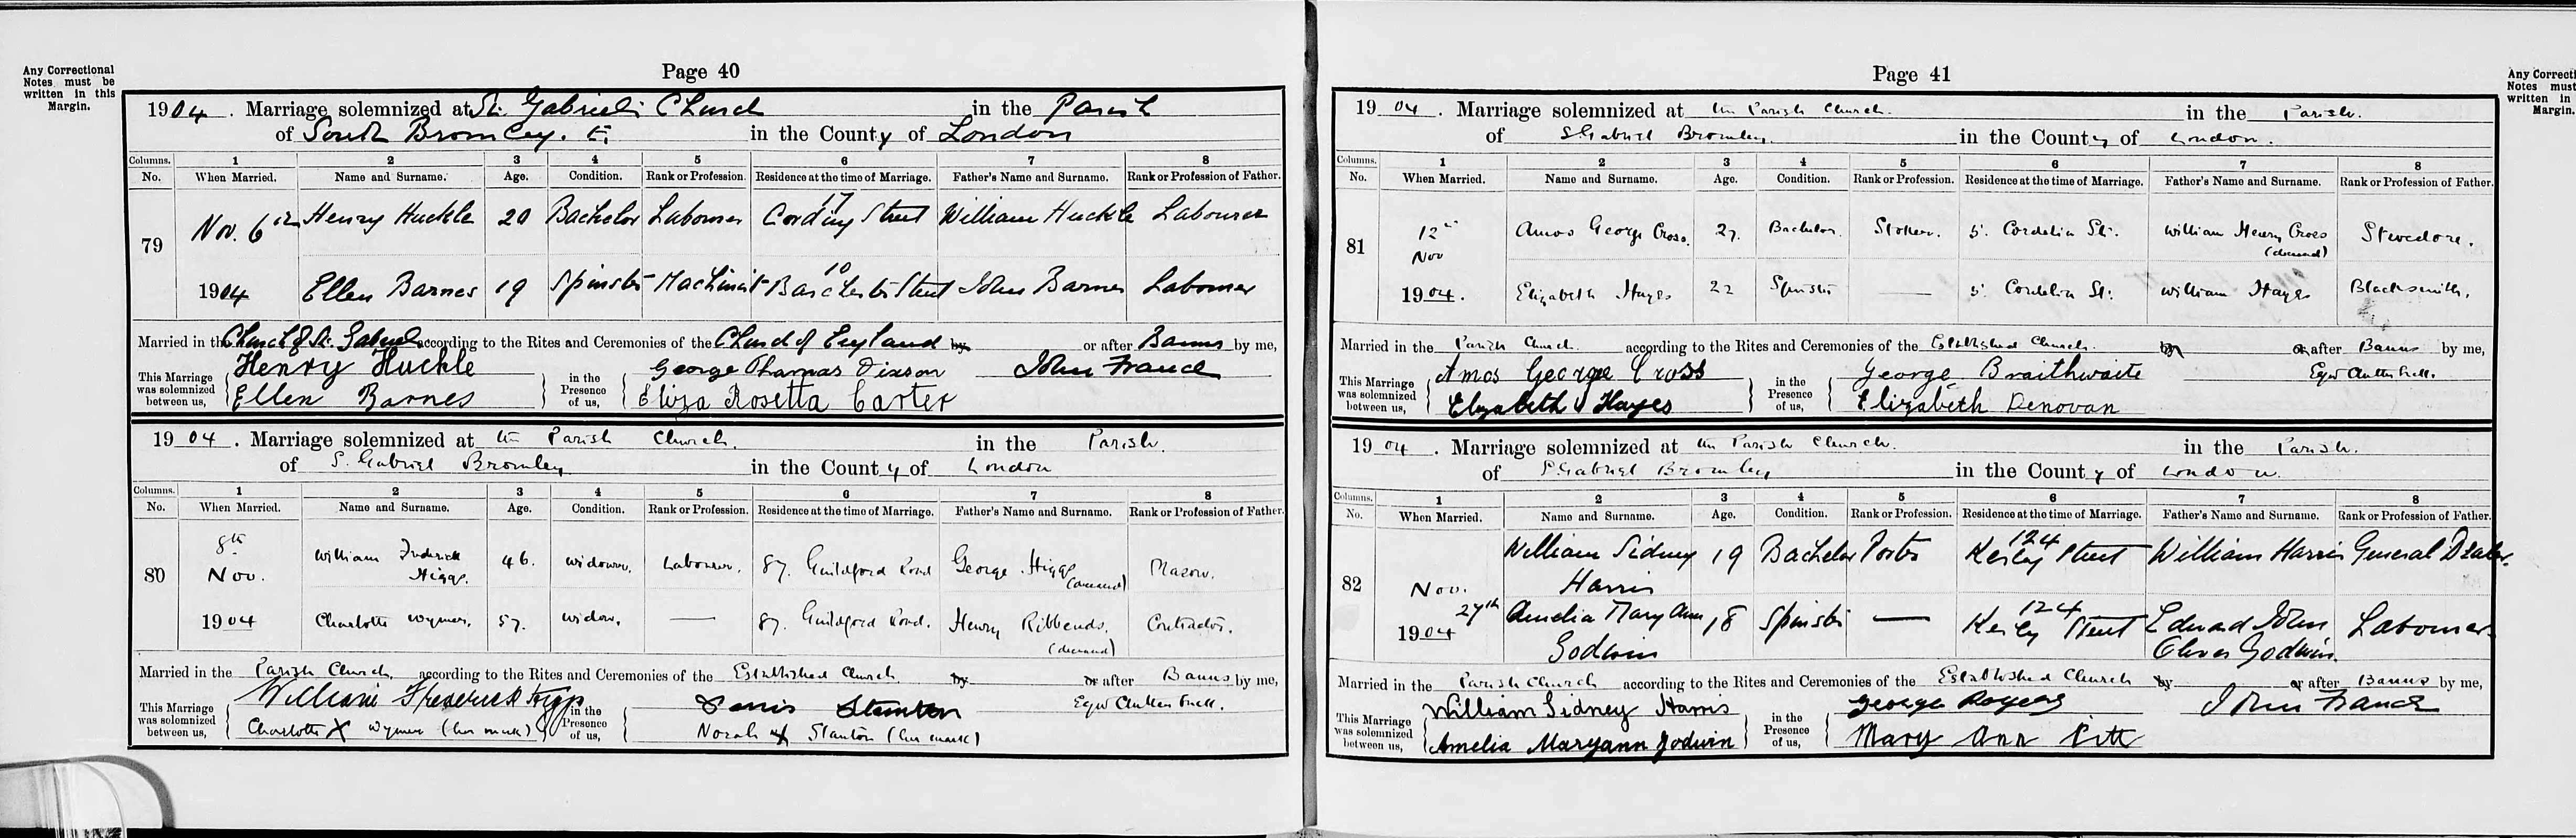 Any Correctional
Notes must be
written in this
Margin.
Page 40
1904. Marriage solemnized at St. Gabriel's Church in the Parish
of South Bromley. E. in the County of London
Columns. 1 2 3 4 5 6 7 8
No. When Married. Name and Surname. Age. Condition. Rank or Profession. Residence at the time of Marriage. Father's Name and Surname. Rank or Profession of Father.
79 Nov. 6th Henry Huckle 20 Bachelor Labourer 17 Cording Street William Huckle Labourer
1904 Ellen Barnes 19 Spinster Machinist 10 Barchester Street John Barnes Labourer
Married in the Church of St. Gabriel according to the Rites and Ceremonies of the Church of England by or after Banns by me,
This Marriage was solemnized between us, Henry Huckle in the Presence of us, George Thomas Dixson John Franck
Ellen Barnes Eliza Rosetta Carter
1904. Marriage solemnized at the Parish Church. in the Parish.
of S. Gabriel Bromley in the County of London
Columns. 1 2 3 4 5 6 7 8
No. When Married. Name and Surname. Age. Condition. Rank or Profession. Residence at the time of Marriage. Father's Name and Surname. Rank or Profession of Father.
80 8th Nov. William Frederick Higgs. 46. Widower. Labourer. 87. Guildford Road George Higgs (deceased) Mason.
1904 Charlotte Wymer. 57. Widow. — 87. Guildford Road. Henry Ribbends. (deceased) Contractor.
Married in the Parish Church. according to the Rites and Ceremonies of the Established Church by or after Banns by me,
This Marriage was solemnized between us, William Frederick Higgs in the Presence of us, Stanton
Charlotte X Wymer (her mark) Norah X Stanton (her mark)
Any Correcti
Notes must
written in
Margin.
Page 41
1904. Marriage solemnized at the Parish Church. in the Parish.
of S. Gabriel Bromley. in the County of London.
Columns. 1 2 3 4 5 6 7 8
No. When Married. Name and Surname. Age. Condition. Rank or Profession. Residence at the time of Marriage. Father's Name and Surname. Rank or Profession of Father.
81 12th Nov Amos George Cross. 27. Bachelor. Stoker. 5. Cordelia St. William Henry Cross (deceased) Stevedore.
1904. Elizabeth Hayes 22 Spinster — 5. Cordelia St. William Hayes Blacksmith.
Married in the Parish Church. according to the Rites and Ceremonies of the Established Church. by or after Banns by me,
This Marriage was solemnized between us, Amos George Cross in the Presence of us, George Braithwaite
Elizabeth Hayes Elizabeth Denovan
1904. Marriage solemnized at the Parish Church. in the Parish.
of S Gabriel Bromley in the County of London.
Columns. 1 2 3 4 5 6 7 8
No. When Married. Name and Surname. Age. Condition. Rank or Profession. Residence at the time of Marriage. Father's Name and Surname. Rank or Profession of Father.
82 Nov. 27th William Sidney Harris 19 Bachelor Porter 124 Kerby Street William Harris General Dealer.
1904 Amelia Mary Ann Godwin 18 Spinster — 124 Kerby Street Edward John Oliver Godwin. Labourer.
Married in the Parish Church according to the Rites and Ceremonies of the Established Church by or after Banns by me,
This Marriage was solemnized between us, William Sidney Harris in the Presence of us, George Rogers John Franck
Amelia Maryann Godwin Mary Ann Pitt